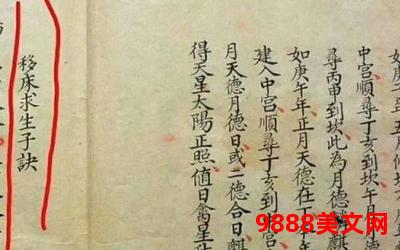 中宮順尋丁亥到坎午月月德
尋丙甲到坎此為月德麒
如庚午年正月天德在
建入中宮順尋丁亥到
月天德月德日或二德合日麒
得天星太陽正照值日禽星
移床求生子訣
9888美文网